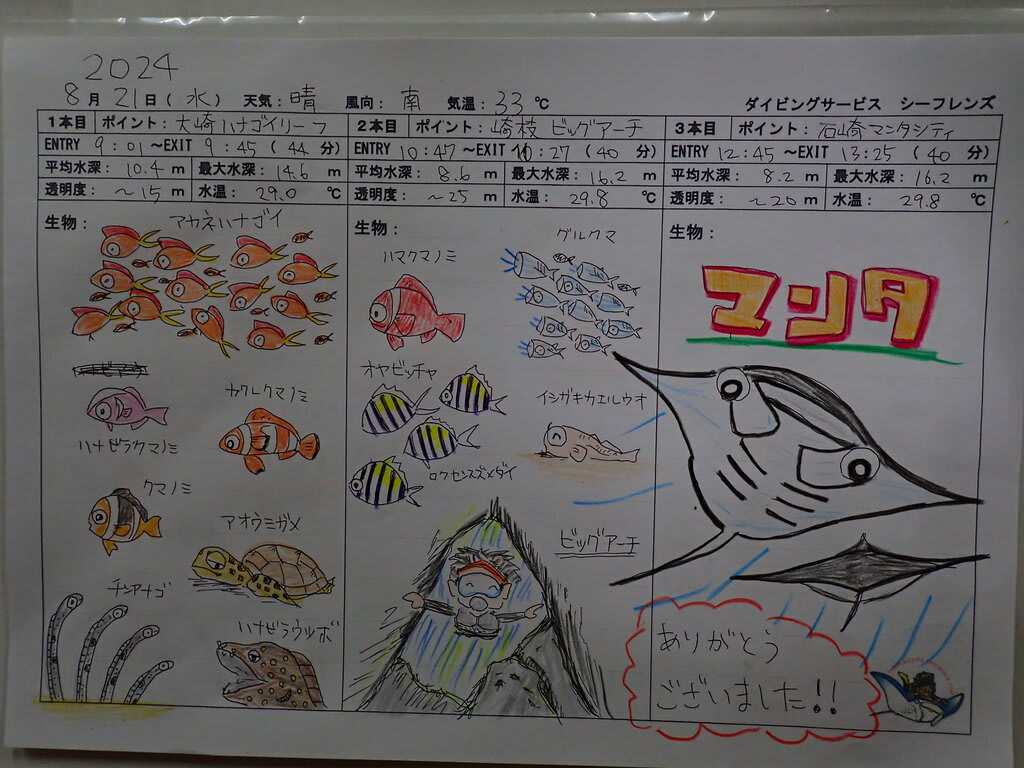 2024
8月21日(水) 天気:晴 風向:南 気温:33℃ ダイビングサービス シーフレンズ
1本目 ポイント:大崎ハナゴイリーフ
ENTRY 9:01 ~EXIT 9:45 (44 分)
平均水深: 10.4 m 最大水深: 14.6 m
透明度: ~15 m 水温: 29.0 ℃
生物:
アカネハナゴイ
ハナビラクマノミ
カクレクマノミ
クマノミ
アオウミガメ
チンアナゴ
ハナビラウツボ
2本目 ポイント:崎枝 ビッグアーチ
ENTRY 10:47 ~EXIT 11:27 (40 分)
平均水深: 8.6 m 最大水深: 16.2 m
透明度: ~25 m 水温: 29.8 ℃
生物:
グルクマ
ハマクマノミ
オヤビッチャ
イシガキカエルウオ
ロクセンスズメダイ
ビッグアーチ
3本目 ポイント:石崎マンタシティ
ENTRY 12:45 ~EXIT 13:25 (40 分)
平均水深: 8.2 m 最大水深: 16.2 m
透明度: ~20 m 水温: 29.8 ℃
生物:
マンタ
ありがとう
ございました!!